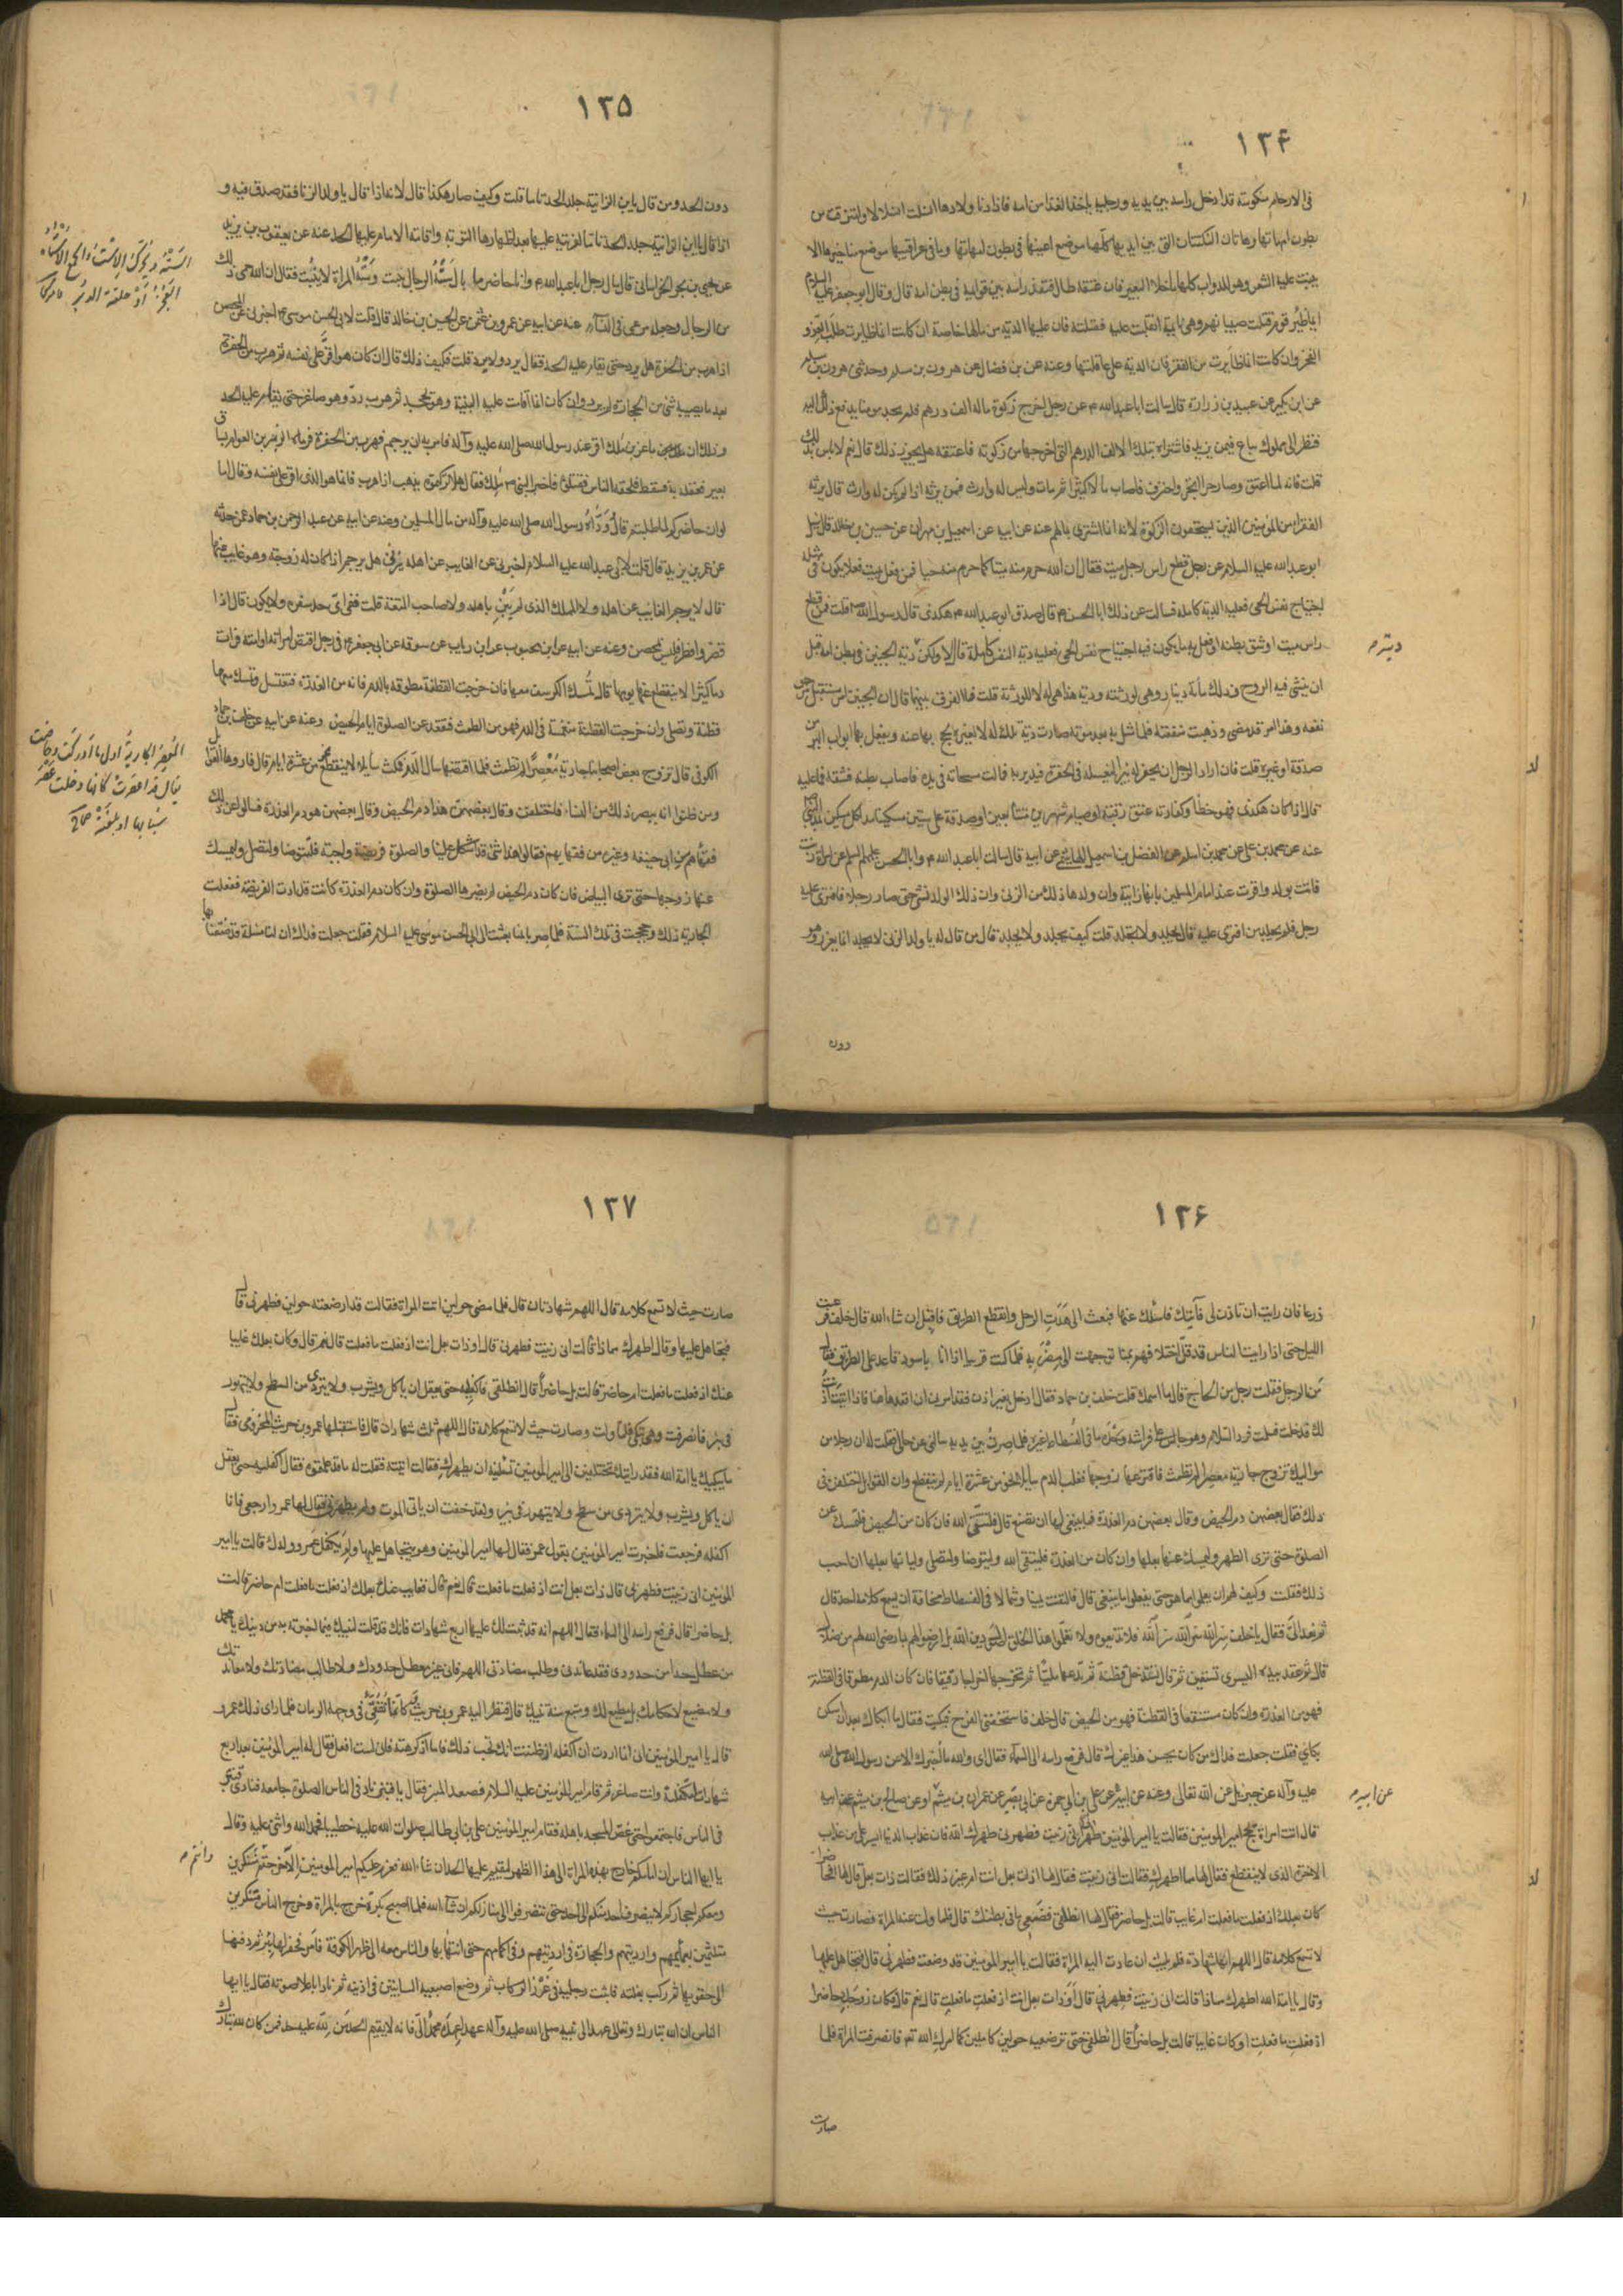 ١٣۴
في الارحام منكوسة قد ادخل راسه بين يديه ورجليه ياخذ الغذا من امه فاذا دنا ولادها انسلت انسلالا وانتزقت من
بطون امهاتها وهاتان النكتتان التي بين ايديها كلّها موضع اعينها في بطون امهاتها وما في عراقيبها موضع مناخيرها لا
ينبت عليه الشعر وهو للدواب كلها ما خلا البعير فان عنقه طال فتقدم راسه بين قوايمه في بطن امه قال وقال ابو جعفر عليه السلام
ايما ظير قوم قتلت صبيا لهم وهي نايمة انقلبت عليه فقتلته فان عليها الدية من مالها خاصة ان كانت انما ظايرت طلب العز و
الفخر وان كانت انما ظايرت من الفقر فان الدية على عاقلتها وعنه عن بن فضال عن هرون بن مسلم وحدثني هرون بن مسلم
عن ابن بكير عن عبيد بن زرارة قال سالت ابا عبد الله ع عن رجل اخرج زكوة ماله الف درهم فلم يجد مومنا يدفع ذلك اليه
فنظر الى مملوك يباع فيمن يزيد فاشتراه بتلك الالف الدرهم التي اخرجها من زكوته فاعتقه هل يجوز ذلك قال نعم لا باس بذلك
قلت فانه لما اعتق وصار حرا اتجر واحترف فاصاب مالا كثيرا ثم مات وليس له وارث فمن يرثه اذا لم يكن له وارث قال يرثه
الفقراء من المومنين الذين يستحقون الزكوة لانه انما اشترى بمالهم عنه عن ابيه عن اسمعيل بن مهران عن حسين بن خالد قال سئل
ابو عبد الله عليه السلام عن رجل قطع راس رجل ميت فقال ان الله حرم منه ميتا كما حرم منه حيا فمن فعل بميت فعلا يكون في مثله
اجتياح نفس الحي فعليه الدية كاملة فسالت عن ذلك ابا الحسن ع قال صدق ابو عبد الله ع هكذى قال رسول الله ص قلت فمن قطع
راس ميت او شق بطنه او فعل به ما يكون فيه اجتياح نفس الحي فعليه دية النفس كاملة قال لا ولكن دية الجنين في بطن امه قبل
ان ينشي فيه الروح وذلك مأية دينار وهي لورثته ودية هذا هي له لا للورثة قلت فما الفرق بينهما قال ان الجنين امر مستقبل مرجو
نفعه وهذا امر قد مضى وذهبت منفعته فلما مثل به بعد موته صارت دية تلك له لا لغيره يحج بها عنه ويفعل بها ابواب البر من
صدقة او غيره قلت فان اراد الرجل ان يحفر له بيرا ليغسله في الحفرة فيدير به فمالت مسحاته في يده فاصاب بطنه فشقه فما عليه
قال اذا كان هكذى فهو خطأ وكفارته عتق رقبة او صيام شهرين متتابعين او صدقة على ستين مسكينا مد لكل مسكين
عنه عن محمد بن علي عن محمد بن اسلم عن الفضل بن اسمعيل الهاشمي عن ابيه قال سالت ابا عبد الله ع وابا الحسن عليهم السلم عن امراة زنت
فاتت بولد واقرت عند امام المسلمين بانها زانية وان ولدها ذلك من الزنى وان ذلك الولد نشى حتى صار رجلا فافترى عليه
رجل فلم يجلد من افترى عليه قال يجلد ولا يجلد قلت كيف يجلد ولا يجلد قال من قال له يا ولد الزنى لا يجلد انما يعزر وهو
ديته م
دون
١٣٥
دون الحد ومن قال يا بن الزانية جلد الحد تاما قلت وكيف صار هكذا قال لانه اذا قال يا ولد الزنا فقد صدق فيه و
اذا قال يا ابن الزانية جلد الحد تاما لفريته عليها بعد اظهارها التوبة واقامة الامام عليها الحد عنه عن يعقوب بن يزيد
عن يحيى بن الخراساني قال سال رجل ابا عبد الله ع وانا حاضر ما بال است الرجال نبت واست المراة لا ينبت فقال ان الله حمى ذلك
من الرجال وجعله مرعى في النساء عنه عن ابيه عن عمرو بن عثمن عن الحسين بن خالد قال قلت لابي الحسن موسى ع اخبرني عن المحصن
اذا هرب من الحفرة هل يرد حتى يقام عليه الحد فقال يرد ولا يرد قلت فكيف ذلك قال ان كان هو اقر على نفسه ثم هرب من الحفرة
بعد ما يصيبه شئ من الحجارة لم يرد وان كان انما اقامت عليه البينة وهو يجحد ثم هرب ردّ وهو صاغر حتى يقام عليه الحد
وذلك ان ماعز بن ملك اقر عند رسول الله صلى الله عليه وآله فامر به ان يرجم فهرب من الحفرة فرماه الزبير بن العوام بساق
بعير فعقله به فسقط فلحقه الناس فقتلوه فاخبر النبي ص بذلك فقال هلا تركتموه يذهب اذا هرب فانما هو الذي اقر على نفسه وقال اما
لو ان حاضركم لما طلبتم قال ووداه رسول الله صلى الله عليه وآله من مال المسلمين وعنه عن ابيه عن عبد الرحمن بن حماد عن حدثه
عن عمر بن يزيد قال قلت لابي عبد الله عليه السلام اخبرني عن الغايب عن اهله يزني هل يرجم اذا كان له زوجة وهو غايب عنها
قال لا يرجم الغايب عن اهله ولا المملك الذي لم يَبْنِ باهله ولا صاحب المتعة قلت ففي اي حد سفره ولا يكون قال اذا
قصر وافطر فليس بمحصن وعنه عن ابيه عن ابن محبوب عن ابن رياب عن سوقه عن ابي جعفر ع في رجل اقتض امراته او امته فرات
دما كثيرا لا ينقطع عنها يومها قال تُمسك الكرسف معها فان خرجت القطنة مطوقة بالدم فانه من العذرة فتغتسل وتمسك معها
قطنة وتصلى وان خرجت القطنة منغمسة في الدم فهو من الطمث فتقعد عن الصلوة ايام الحيض وعنه عن ابيه عن خلف بن حماد
الكوفي قال تزوج بعض اصحابنا جارية مُعْصِراً لم تطمث فلما اقتضها سال الدم فمكث سايلا لا ينقطع نحوا من عشرة ايام قال فاروها القوابل
ومن ظنوا انه يبصر ذلك من النساء فاختلفن وقال بعضهن هذا دم الحيض وقال بعضهن هو دم العذرة فسالوا عن ذلك
فقهاهم مثل ابي حنيفه وغيره من فقهايهم فقالوا هذا شئ قد اشكل علينا والصلوة فريضة واجبة فلتتوضا ولتصل وليمسك
عنها زوجها حتى ترى البياض فان كان دم الحيض لم يضرها الصلوة وان كان دم العذرة كانت قد ادت الفريضة ففعلت
الجارية ذلك وحججت في تلك السنة فلما صرنا بمنا بعثت الى ابي الحسن موسى عليه السلام فقلت جعلت فداك ان لنا مسئلة قد ضقنا بها
السَّتَهُ ويُحرّك الاست والجمع الاستاه
العَجُزُ أَوْ حلقة الدبر قاموس
المُعصِر الجارية اول ما ادركت وحاضت
يقال قد اعصرت كانها دخلت عصر
شبابها او بلغته ص
١٣۶
ذرعا فان رايت ان تاذن لي فآتيك فاسئلك عنها فبعث الى هَدَتِ الرجل وانقطع الطريق فاقبل ان شاء الله قال خلف فرعيت
الليل حتى اذا رايت الناس قد قلّ اختلافهم بمنا توجهت الى مضربه فلما كنت قريبا اذا انا باسود قاعد على الطريق فقال
من الرجل فقلت رجل من الحاج قال ما اسمك قلت خلف بن حماد فقال ادخل بغير اذن فقد امرني ان اقعد هاهنا فاذا اتيت اذنت
لك قد خلت فسلمت فرد السلام وهو جالس على فراشه وحده ما في الفسطاط غيره فلما صرتُ بين يديه سالني عن حالي فقلت له ان رجلا من
مواليك تزوج جارية معصراً لم تطمث فاقترعها زوجها فغلب الدم سايلا نحو من عشرة ايام لم ينقطع وان القوابل اختلفن في
ذلك فقال بعضهن دم الحيض وقال بعضهن دم العذرة فما ينبغي لها ان تصنع قال فلتتقى الله فان كان من الحيض فلتمسك عن
الصلوة حتى ترى الطهر وليمسك عنها بعلها وان كان من العذرة فليتقى الله وليتوضا ولتصلي ولياتها بعلها ان احب
ذلك فقلت وكيف لهم ان يعلموا ما هو حتى يفعلوا ما ينبغي قال فالتفت يمينا وشمالا في الفسطاط مخافة ان يسمع كلامه احد قال
ثم نهد اليّ فقال يا خلف سر الله سر الله سر الله فلا تذيعوه ولا تعلموا هذا الخلق اصول دين الله بل ارضوا لهم بما رضى الله لهم من ضلال
قال ثم عقد بيده اليسرى تسعين ثم قال تستدخل قطنة ثم تدعها مليّاً ثم تخرجها اخراجا رقيقا فان كان الدم مطوقا في القطنة
فهو من العذرة وان كان مستنقعا في القطنة فهو من الحيض قال خلف فاستخفني الفرح فبكيت فقال ما ابكاك بعد ان سكن
بكاي فقلت جعلت فداك من كان يحسن هذا غيرك قال فرفع راسه الى السماء فقال اي والله ما اخبرك الا عن رسول الله صلى الله
عليه وآله عن جبرئيل عن الله تعالى وعنه عن ابيه عن علي بن ابي حمزة عن ابي بصير عن عمران بن ميثم او عن صالح بن ميثم عن ابيه
قال اتت امراة مجح امير المومنين فقالت يا امير المومنين طهرني اني زنيت فطهرني طهرك الله فان عذاب الدنيا ايسر علي من عذاب
الاخرة الذي لا ينقطع فقال لها مما اطهرك فقالت اني زنيت فقال لها اذات بعل انت ام غير ذلك فقالت ذات بعل قال لها افحاضرا
كان بعلك اذ فعلت ما فعلت ام غايب قالت بل حاضر فقال لها انطلقي فضعي ما في بطنك قال فلما ولت عنه المراة فصارت حيث
لا تسمع كلامه قال اللهم انها شهادة فلم يلبث ان عادت اليه المراة فقالت يا امير المومنين قد وضعت فطهرني قال فتجاهل عليها
وقال يا امة الله اطهرك مما ذا قالت اني زنيت فطهرني قال أوَذات بعل انت اذ فعلت ما فعلت قالت نعم قال فكان زوجك حاضرا
اذ فعلت ما فعلت او كان غايبا قالت بل حاضراً قال انطلقي حتى ترضعيه حولين كاملين كما امرك الله تعـ فانصرفت المراة فلما
عن ابيه م
صارت
١٣٧
صارت حيث لا تسمع كلامه قال اللهم شهادتان قال فلما مضى حولين اتت المراة فقالت قد ارضعته حولين فطهرني قال
فتجاهل عليها وقال اطهرك مما ذا قالت اني زنيت فطهرني قال اوذات بعل انت اذ فعلت ما فعلت قالت نعم قال وكان بعلك غايبا
عنك اذ فعلت ما فعلت ام حاضر قالت بل حاضراً قال انطلقي فاكفليه حتى يعقل ان ياكل ويشرب ولا يتردى من السطح ولا يتهور
في بئر فانصرفت وهي تبكي فلما ولت وصارت حيث لا تسمع كلامه قال اللهم ثلث شهادات قال فاستقبلها عمرو بن حريث المخزومي فقال
ما يبكيك يا امة الله فقد رايتك تختلفين الى امير المومنين تسئلينه ان يطهرك فقالت اتيته فقلت له ما قد علمتموه فقال اكفليه حتى يعقل
ان ياكل ويشرب ولا يتردى من سطح ولا يتهور في بئر ولقد خفت ان ياتي الموت ولم يطهرني فقال لها عمرو ارجعي فانا
اكفله فرجعت فاخبرت امير المومنين بقول عمرو فقال لها امير المومنين وهو يتجاهل عليها ولم يكفل عمرو ولدك قالت يا امير
المومنين اني زنيت فطهرني قال ذات بعل انت اذ فعلت ما فعلت قالت نعم قال فغايب كان بعلك اذ فعلت ما فعلت ام حاضر قالت
بل حاضرا قال فرفع راسه الى السماء فقال اللهم انه قد ثبت لك عليها اربع شهادات فانك قد قلت لنبيك فيما اخبرته به من دينك يا محمد
من عطل حدا من حدودي فقد عاندني وطلب مضادتي اللهم فاني غير معطل حدودك ولا طالب مضادتك ولا معاندتك
ولا مضيع لاحكامك بل مطيع لك ومتبع سنة نبيك قال فنظر اليه عمرو بن حريث فكانما تفقأ في وجهه الرمان فلما راى ذلك عمرو
قال يا امير المومنين اني انما اردت ان اكفله اذ ظننت انك تحب ذلك فاما اذ كرهته فاني لست افعل فقال له امير المومنين بعد اربع
شهادات لتكفلنه وانت صاغر ثم قام امير المومنين عليه السلام فصعد المنبر فقال يا قنبر ناد في الناس الصلوة جامعة فنادى قنبر
في الناس فاجتمعوا حتى غص المسجد باهله فقام امير المومنين علي بن ابي طالب صلوات الله عليه خطيبا فحمد الله واثنى عليه وقال
يا ايها الناس ان امامكم خارج بهذه المراة الى هذا الظهر ليقيم عليها الحد ان شاء الله فعزم عليكم امير المومنين الا خرجتم متنكرين
ومعكم احجاركم لا ينصرف احد منكم الى احد حتى تنصرفوا الى منازلكم ان شاء الله فلما اصبح بكرة خرج بالمراة وخرج الناس متنكرين
متلثمين بعمايمهم وارديتهم والحجارة في ارديتهم وفي اكمامهم حتى انتهى بها والناس معه الى ظهر الكوفة فامر فحفر لها بئر ثم دفنها
الى حقويها ثم ركب بغلته فاثبت رجليه في غرز الركاب ثم وضع اصبعيه السبابتين في اذنيه ثم نادا باعلا صوته فقال يا ايها
الناس ان الله تبارك وتعالى عهد الى نبيه صلى الله عليه وآله عهدا عهده محمد الىّ فانه لا يقيم الحد من لله عليه حد فمن كان لله تبارك
وانتم م